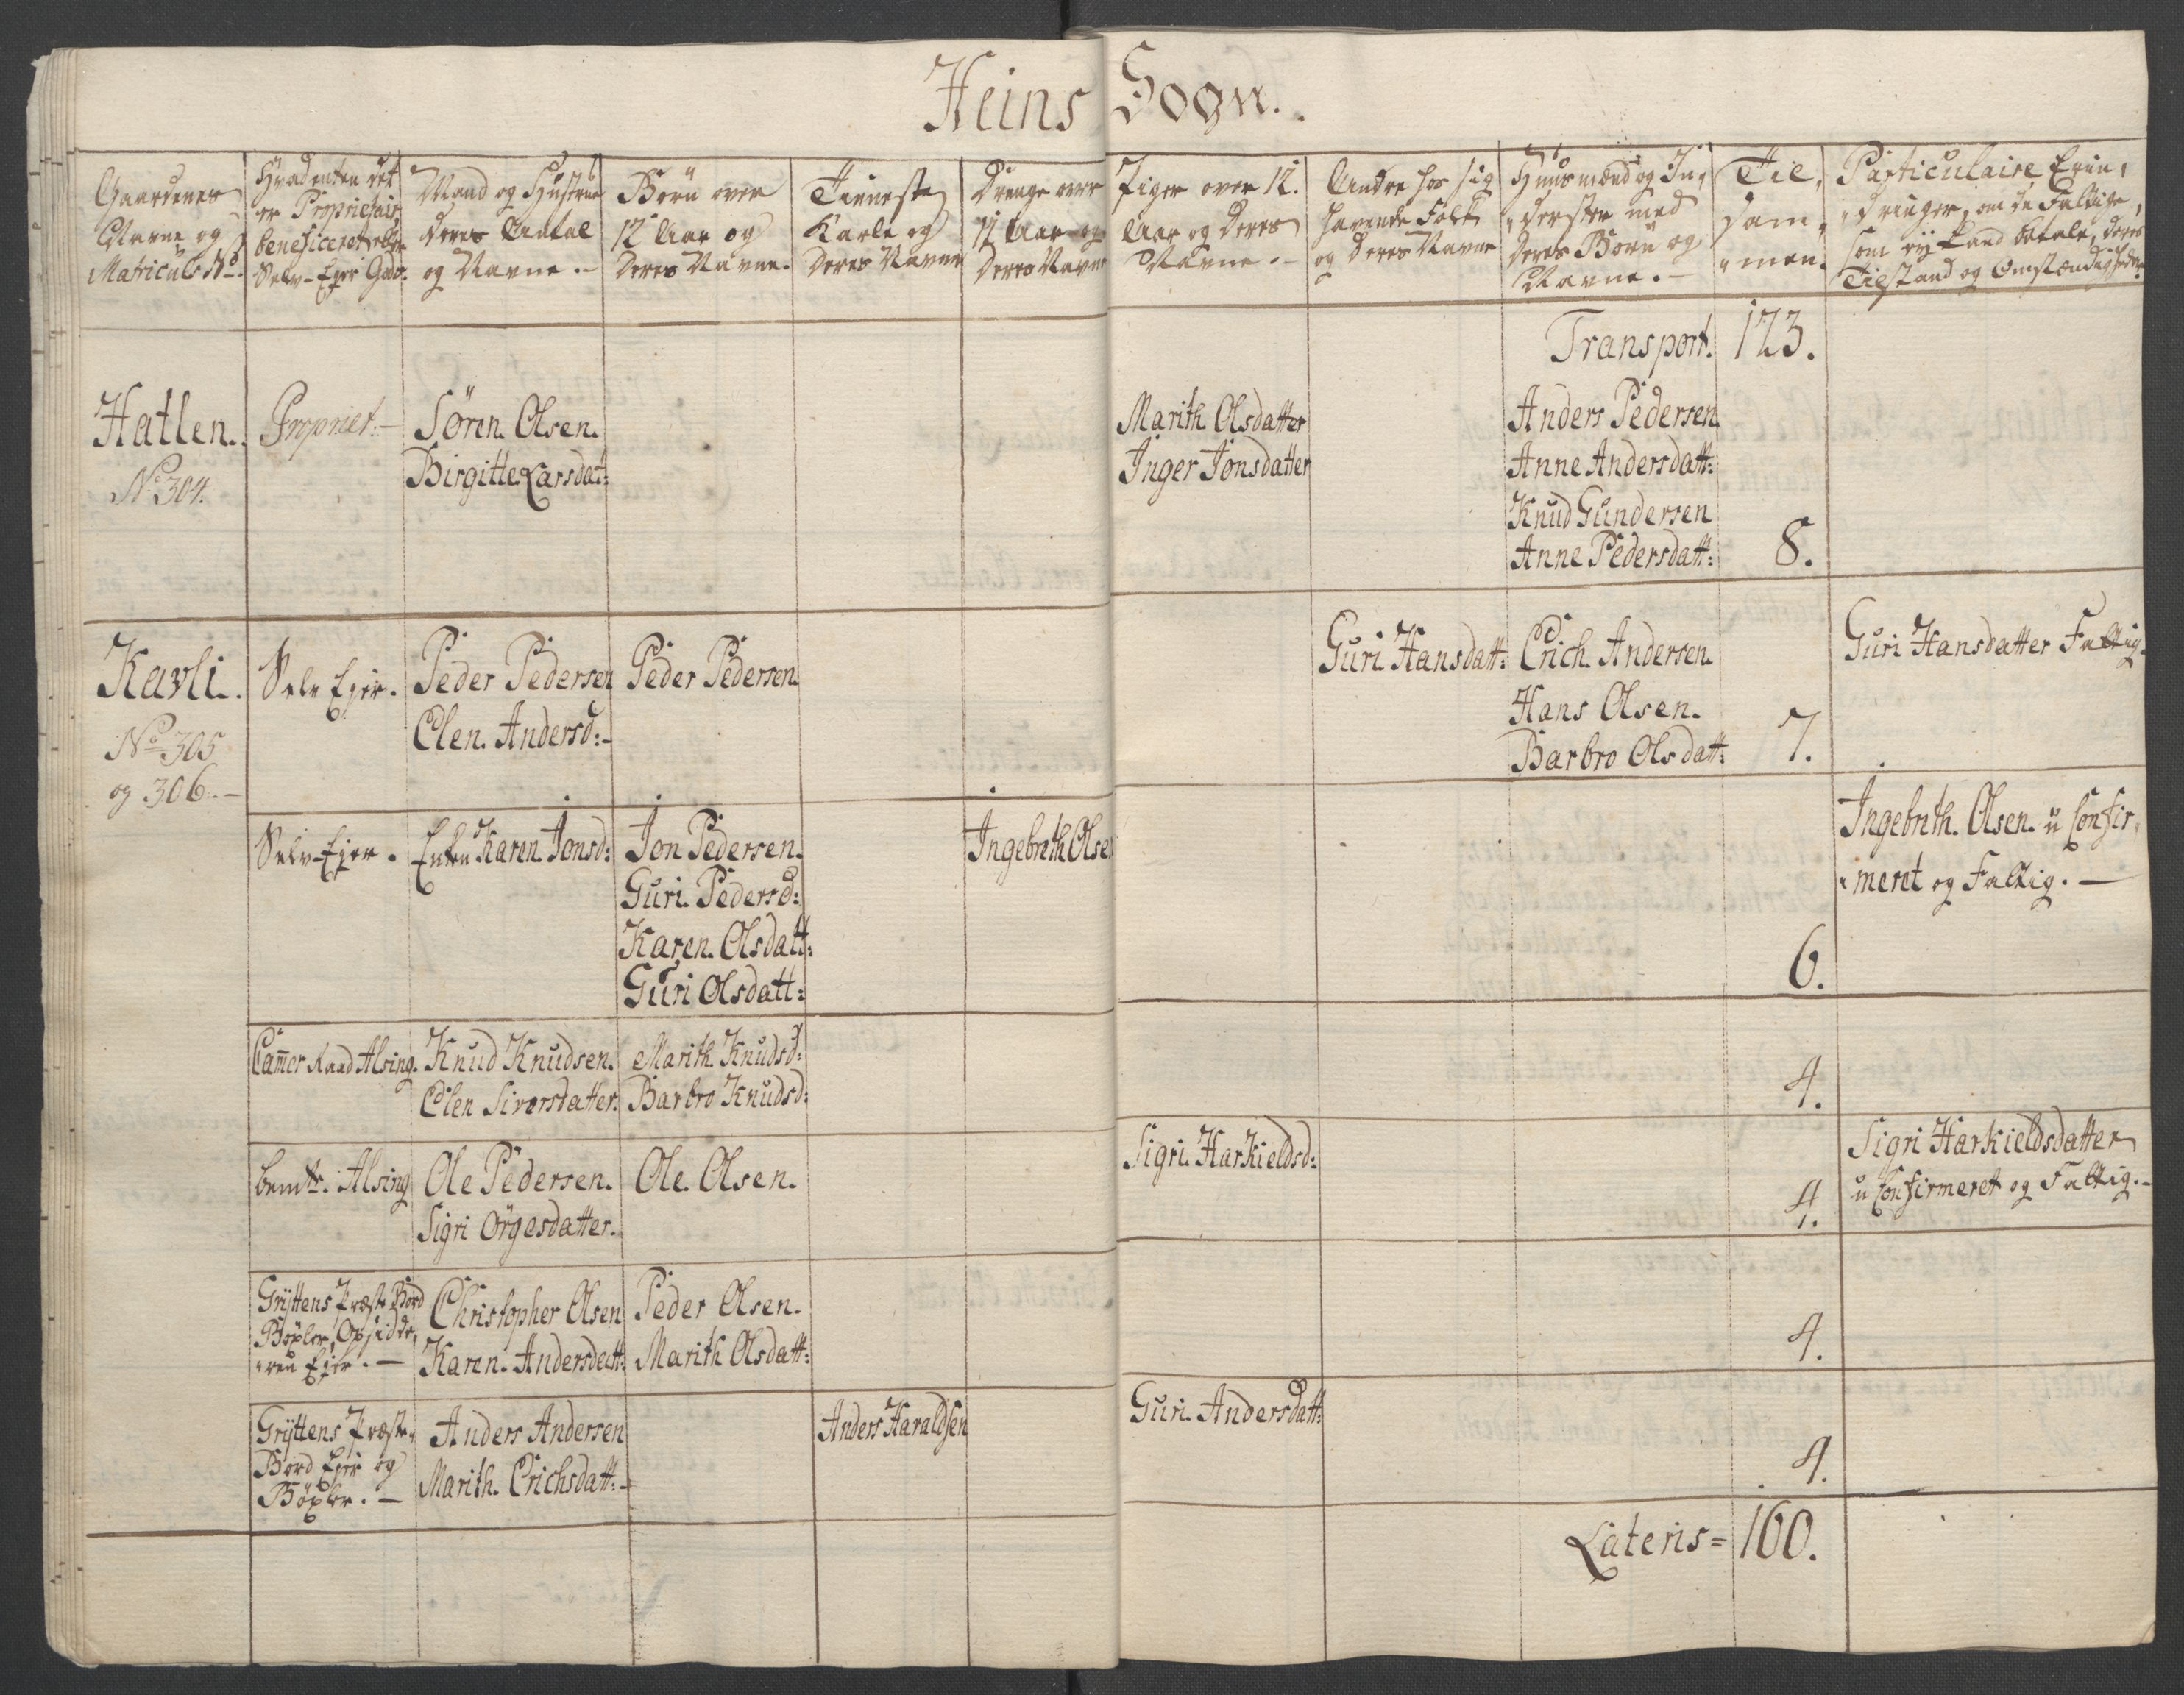 Heins Sogn.
Gaardenes
Navne og
Matriculs No.
Hvad enten det
er Proprietair,
beneficeret eller
Selv-Ejer Gods.
Mand og Hustrue
deres Antal
og Navne.-
Börn over
12 Aar og
deres Navne.
Tieneste
Karle og
deres Navne
Drenge over
12 Aar og
deres Navne
Piger over 12.
Aar og deres
Navne.-
Andre hos sig
havende Folk
og deres Navne
Huusmænd og In-
derster med
deres Börn og
Navne.-
Til,
sam,
men.
Particulaire Erin,
dringer, om de Fattige,
som ej kand betale, deres
Tilstand og Omstændigheder.
Transport. 123.
Hatlen.
No 304.
Propriet:-
Sören Olsen.
Birgitte Larsdat:
Marith Olsdatter
Inger Jonsdatter
Anders Pedersen
Anne Andersdatt:
Knud Gundersen
Anne Pedersdatt:
8.
Kavli.
No 305
og 306.-
Selv Ejer.
Peder Pedersen
Elen. Andersd:-
Peder Pedersen.
Guri Hansdatt:
Erich Andersen.
Hans Olsen.
Barbro Olsdatt:
7.
Guri Hansdatter Fattig.
Selv-Ejer.
Enken Karen Jonsd:
Jon Pedersen.
Guri Pedersd:
Karen Olsdatt:
Guri Olsdatt:
Ingebrith Olsen
6.
Ingebrith. Olsen. u Confir,
meret og Fattig.-
Cam̄er Raad Alsing.
Knud Knudsen.
Elen Siversdatter.
Marith Knudsd:
Barbro Knudsd:
4.
bemte. Alsing
Ole Pedersen.
Sigri Örgesdatter.
Ole Olsen.
Sigri Harkieldsd:
4.
Sigri Harkieldsdatter
u Confirmeret og Fattig.-
Gryttens Præste Bord
Böxler, Opsidde,
ren Ejer.-
Christopher Olsen
Karen. Andersdatt:
Peder Olsen.
Marith Olsdatt:
4.
Gryttens Præste-
Bord Ejer og
Böxler.-
Anders Andersen
Marith. Erichsdatt:-
Anders Haraldsen
Guri Andersdatt:
4.
Lateris= 160.